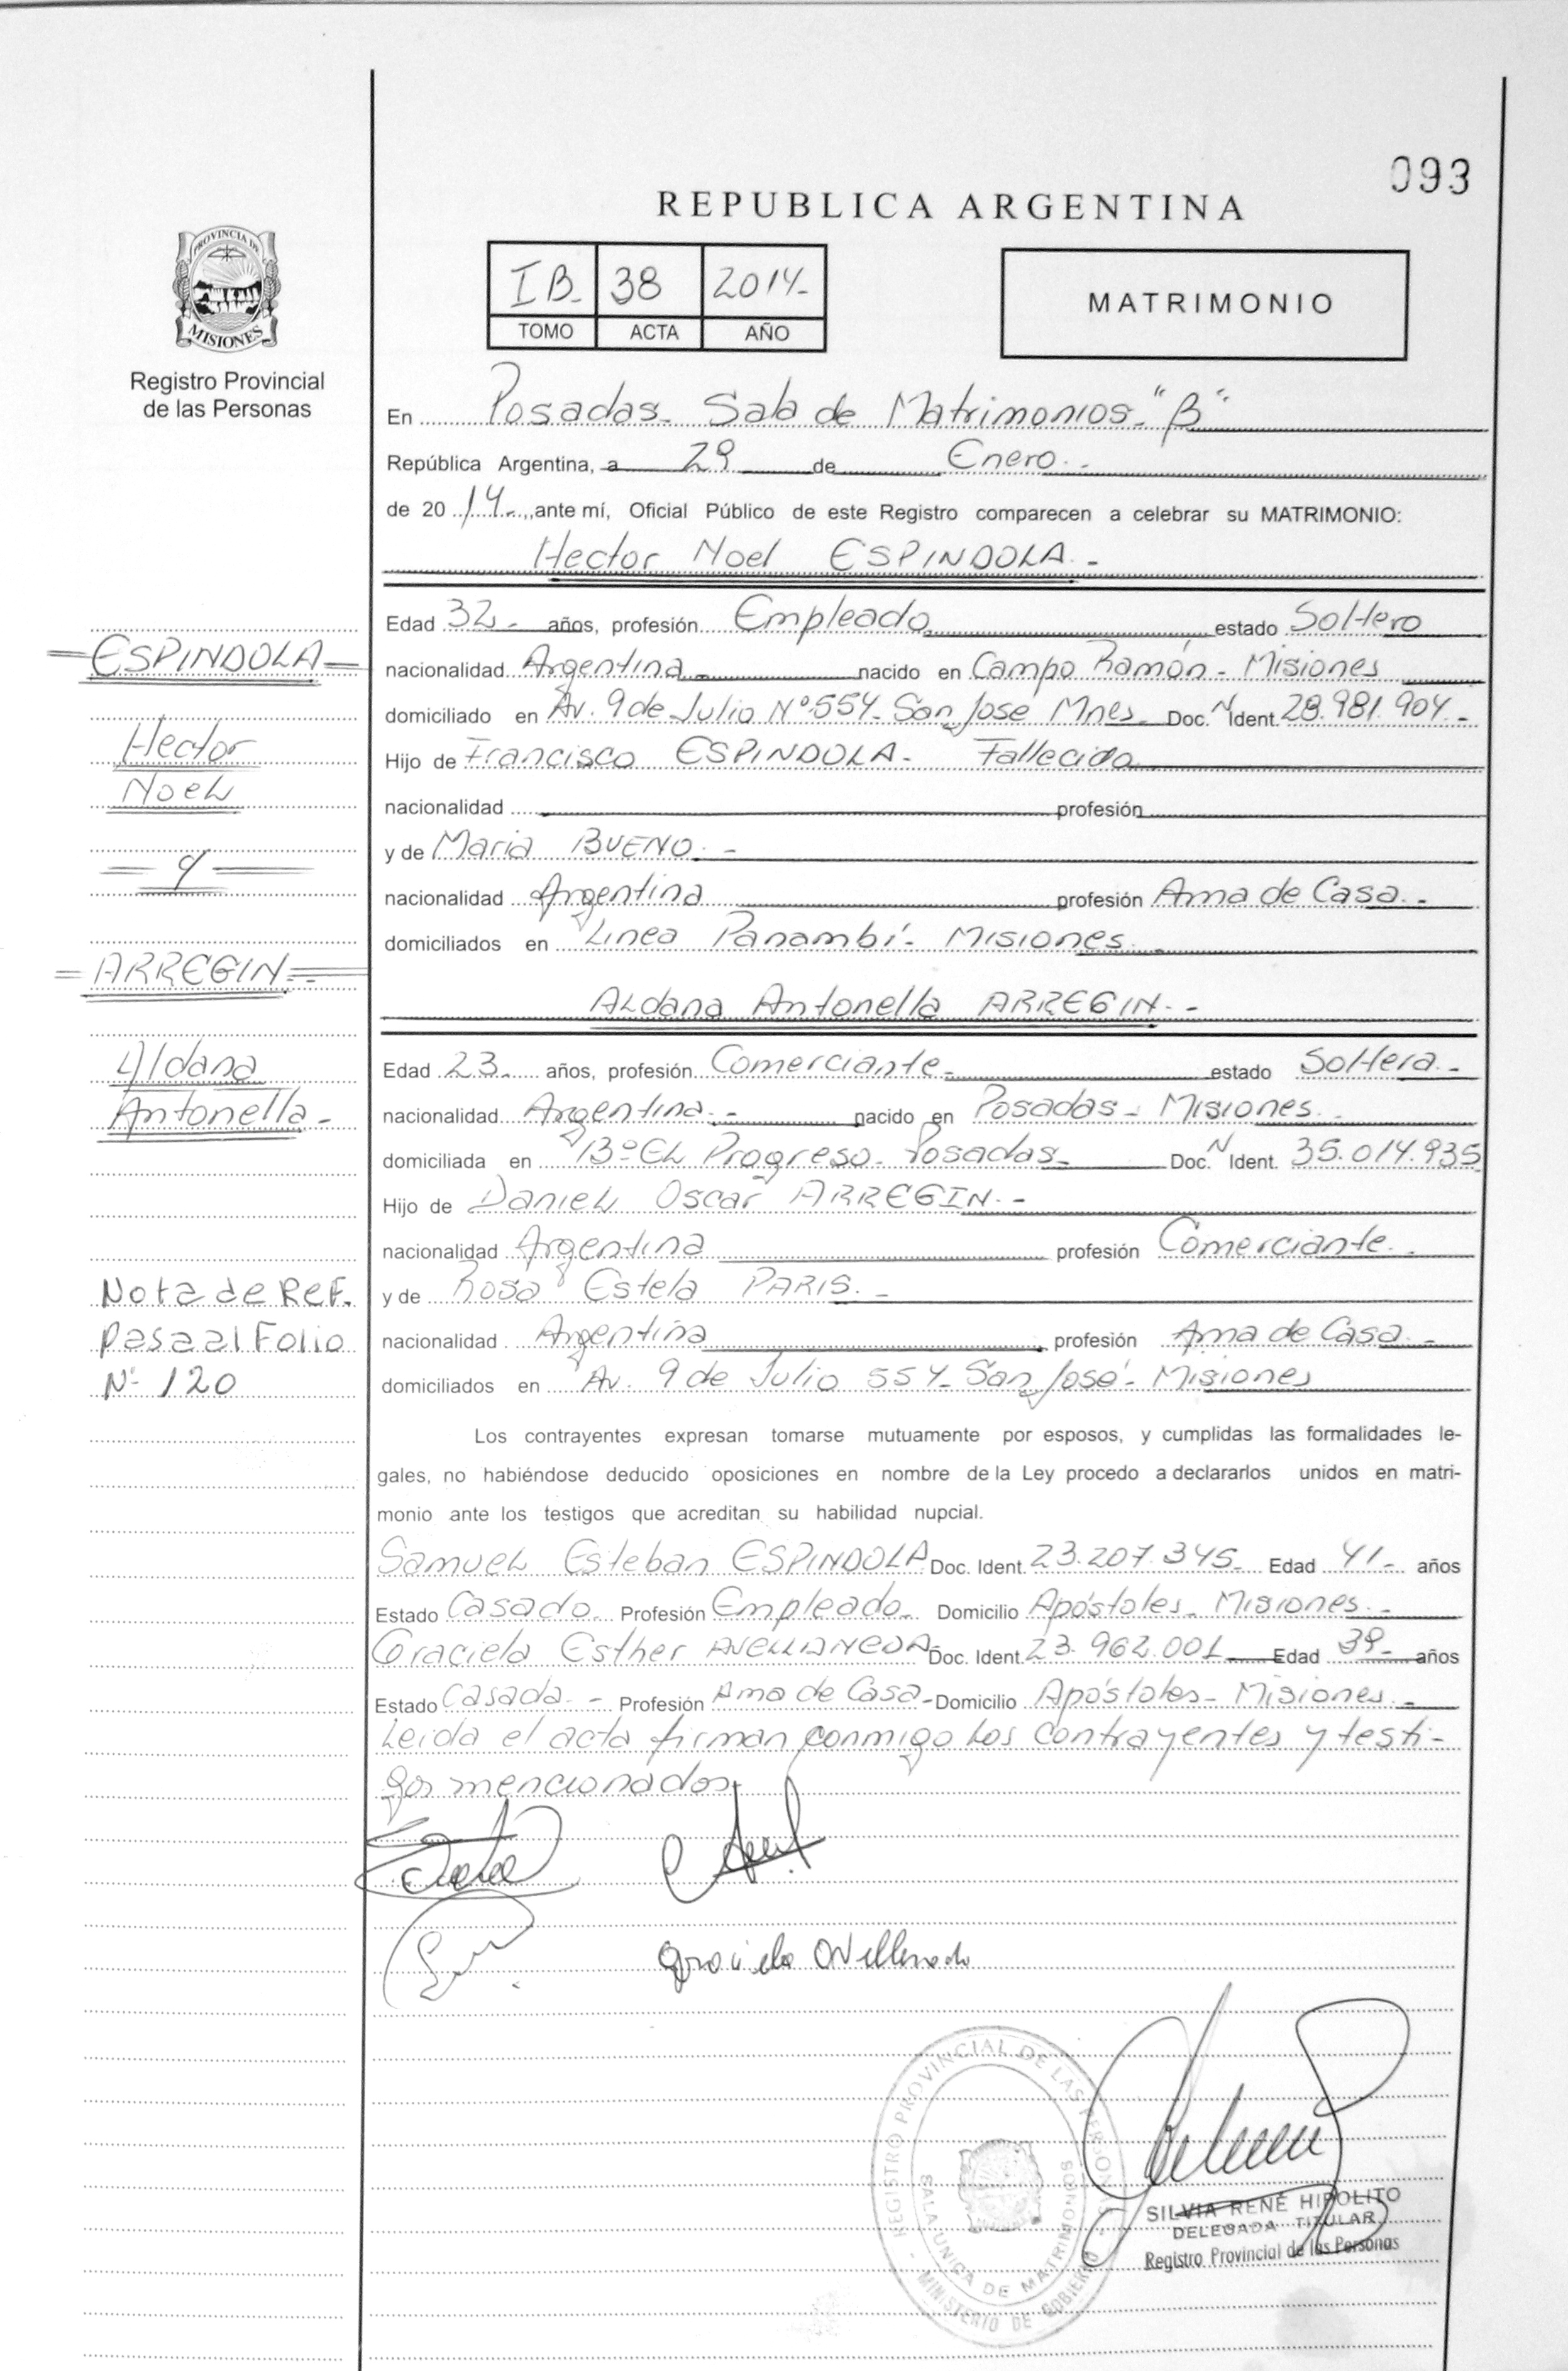 093
REPUBLICA ARGENTINA
PROVINCIA DE
MISIONES
Registro Provincial
de las Personas
IB- 38 2014-
TOMO ACTA AÑO
MATRIMONIO
En Posadas- Sala de Matrimonios- "B"
República Argentina, a 29 de Enero.-
de 2014-, ante mí, Oficial Público de este Registro comparecen a celebrar su MATRIMONIO:
Hector Noel ESPINDOLA.-
Edad 32- años, profesión Empleado estado Soltero
nacionalidad Argentina- nacido en Campo Ramón- Misiones
domiciliado en Av. 9 de Julio Nº 554- San José Mnes- Doc. N Ident. 28.981.904.-
Hijo de Francisco ESPINDOLA- Fallecido
nacionalidad profesión
y de Maria BUENO.-
nacionalidad Argentina profesión Ama de Casa.-
domiciliados en Linea Panambí- Misiones.-
ALdana Antonella ARREGIN.-
Edad 23.- años, profesión Comerciante- estado Soltera.-
nacionalidad Argentina.- nacido en Posadas- Misiones.-
domiciliada en Bº EL Progreso- Posadas- Doc. N Ident. 35.014.935
Hijo de DanieL Oscar ARREGIN.-
nacionalidad Argentina profesión Comerciante.-
y de Rosa Estela PARIS.-
nacionalidad Argentina profesión Ama de Casa.-
domiciliados en Av. 9 de Julio 554- San José- Misiones
Los contrayentes expresan tomarse mutuamente por esposos, y cumplidas las formalidades le-
gales, no habiéndose deducido oposiciones en nombre de la Ley procedo a declararlos unidos en matri-
monio ante los testigos que acreditan su habilidad nupcial.
SamueL Esteban ESPINDOLA Doc. Ident. 23.207.345- Edad 41- años
Estado Casado- Profesión Empleado- Domicilio Apóstoles- Misiones.-
Graciela Esther AVELLANEDA Doc. Ident. 23.962.001 Edad 39- años
Estado Casada.- Profesión Ama de Casa- Domicilio Apóstoles- Misiones.-
Leida el acta firman conmigo Los contrayentes y testi-
gos mencionados-
ESPINDOLA
Hector
NoeL
y
ARREGIN.-
Aldana
Antonella-
Nota de Ref.
pasa al Folio
Nº 120
Graciela Avellaneda
REGISTRO PROVINCIAL DE LAS PERSONAS
SALA UNICA DE MATRIMONIOS
MINISTERIO DE GOBIERNO
SILVIA RENÉ HIPOLITO
DELEGADA TITULAR
Registro Provincial de las Personas